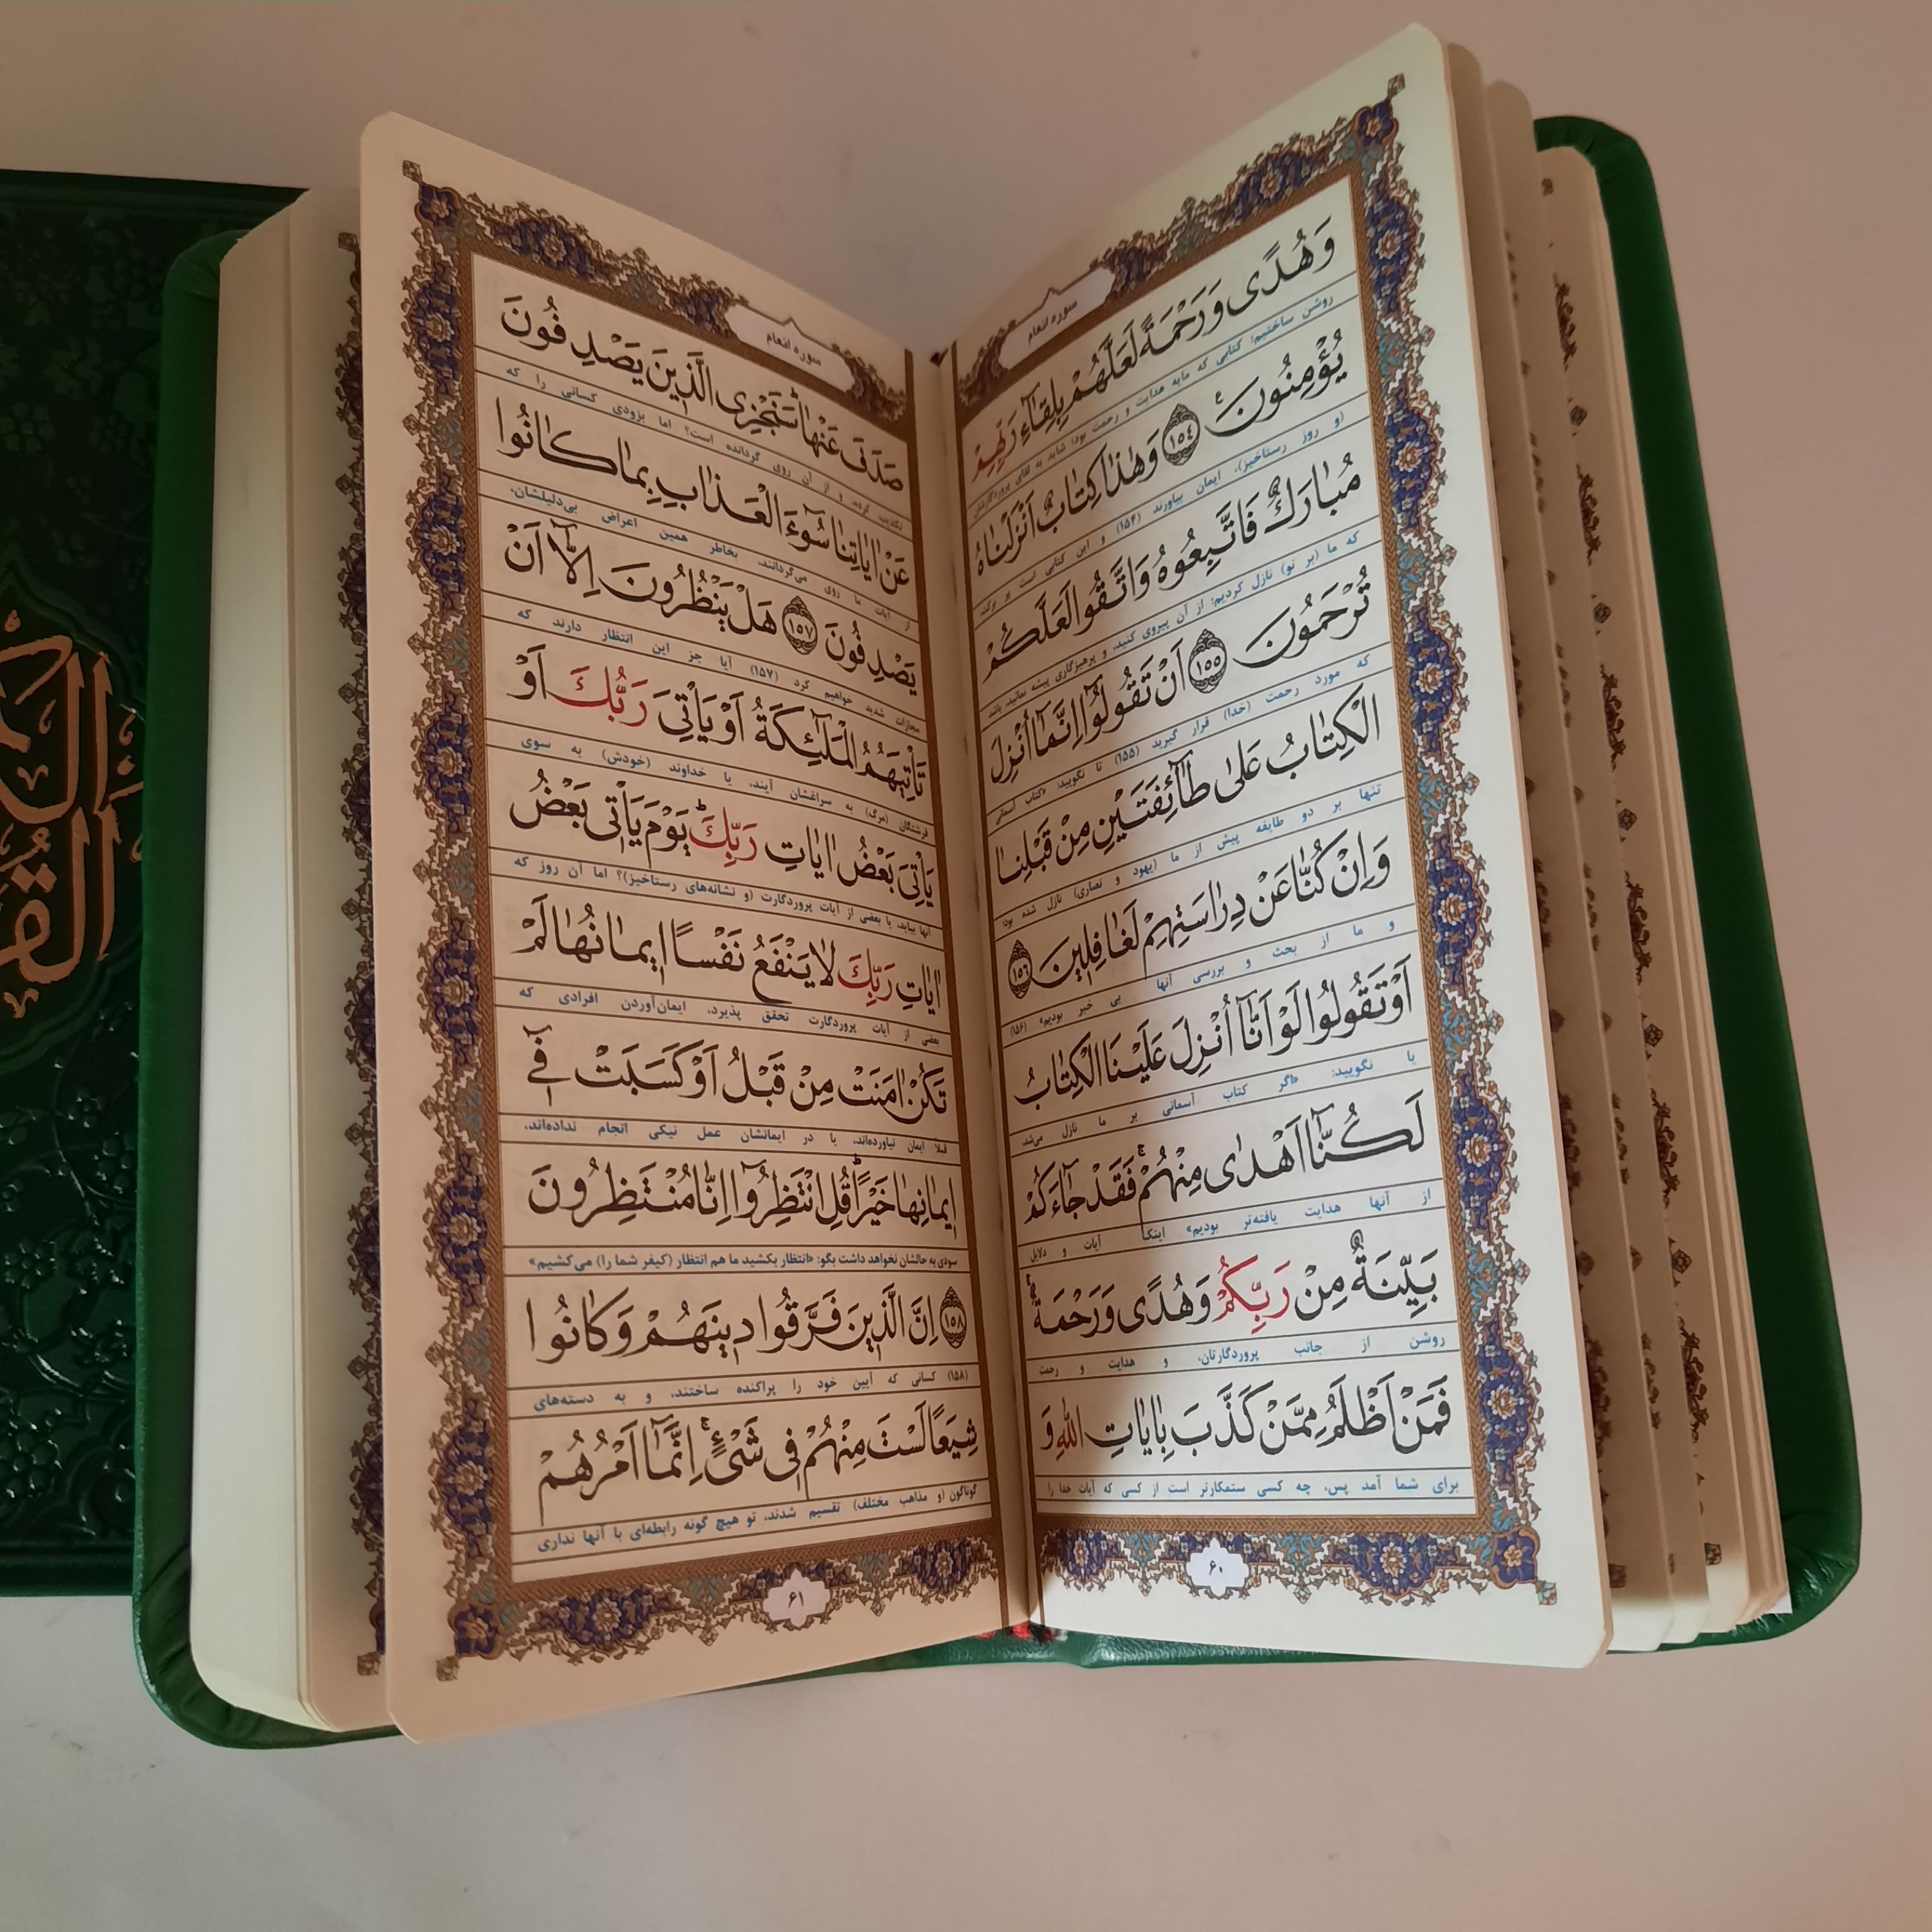 سوره انعام
وَهُدًى وَرَحْمَةً لَعَلَّهُمْ بِلِقَاءِ رَبِّهِمْ
روشن ساختیم؛ کتابی که مایه هدایت و رحمت بود؛ شاید به لقای پروردگارشان
يُؤْمِنُونَ ﴿١٥٤﴾ وَهٰذَا كِتَابٌ اَنْزَلْنَاهُ
(و روز رستاخیز)، ایمان بیاورند (۱۵۴) و این کتابی است پر برکت،
مُبَارَكٌ فَاتَّبِعُوهُ وَاتَّقُوا لَعَلَّكُمْ
که ما (بر تو) نازل کردیم؛ از آن پیروی کنید، و پرهیزگاری پیشه نمائید، باشد
تُرْحَمُونَ ﴿١٥٥﴾ اَنْ تَقُولُوا اِنَّمَا اُنْزِلَ
که مورد رحمت (خدا) قرار گیرید (۱۵۵) تا نگویید: «کتاب آسمانی
الْكِتَابُ عَلٰى طَائِفَتَيْنِ مِنْ قَبْلِنَا
تنها بر دو طایفه پیش از ما (یهود و نصاری) نازل شده بود؛
وَاِنْ كُنَّا عَنْ دِرَاسَتِهِمْ لَغَافِلِينَ ﴿١٥٦﴾
و ما از بحث و بررسی آنها بی خبر بودیم» (۱۵۶)
اَوْ تَقُولُوا لَوْ اَنَّا اُنْزِلَ عَلَيْنَا الْكِتَابُ
یا نگویید: «اگر کتاب آسمانی بر ما نازل می‌شد
لَكُنَّا اَهْدٰى مِنْهُمْ فَقَدْ جَاءَكُمْ
از آنها هدایت یافته‌تر بودیم» اینک آیات و دلایل
بَيِّنَةٌ مِنْ رَبِّكُمْ وَهُدًى وَرَحْمَةٌ
روشن از جانب پروردگارتان، و هدایت و رحمت
فَمَنْ اَظْلَمُ مِمَّنْ كَذَّبَ بِاٰيَاتِ اللّٰهِ وَ
برای شما آمد پس، چه کسی ستمکارتر است از کسی که آیات خدا را
۶۰
سوره انعام
صَدَفَ عَنْهَا سَنَجْزِى الَّذِينَ يَصْدِفُونَ
تکذیب کرده، و از آن روی گردانده است؟ اما بزودی کسانی را که
عَنْ اٰيَاتِنَا سُوءَ الْعَذَابِ بِمَا كَانُوا
از آیات ما روی می‌گردانند، بخاطر همین اعراض بی‌دلیلشان،
يَصْدِفُونَ ﴿١٥٧﴾ هَلْ يَنْظُرُونَ اِلَّا اَنْ
مجازات شدید خواهیم کرد (۱۵۷) آیا جز این انتظار دارند که
تَأْتِيَهُمُ الْمَلٰئِكَةُ اَوْ يَأْتِىَ رَبُّكَ اَوْ
فرشتگان (مرگ) به سراغشان آیند، یا خداوند (خودش) به سوی
يَأْتِىَ بَعْضُ اٰيَاتِ رَبِّكَ يَوْمَ يَأْتِى بَعْضُ
آنها بیاید، یا بعضی از آیات پروردگارت (و نشانه‌های رستاخیز)؟ اما آن روز که
اٰيَاتِ رَبِّكَ لَا يَنْفَعُ نَفْسًا اِيمَانُهَا لَمْ
بعضی از آیات پروردگارت تحقق پذیرد، ایمان‌آوردن افرادی که
تَكُنْ اٰمَنَتْ مِنْ قَبْلُ اَوْ كَسَبَتْ فِى
قبلاً ایمان نیاورده‌اند، یا در ایمانشان عمل نیکی انجام نداده‌اند،
اِيمَانِهَا خَيْرًا قُلِ انْتَظِرُوا اِنَّا مُنْتَظِرُونَ
سودی به حالشان نخواهد داشت بگو: «انتظار بکشید ما هم انتظار (کیفر شما را) می‌کشیم»
﴿١٥٨﴾ اِنَّ الَّذِينَ فَرَّقُوا دِينَهُمْ وَكَانُوا
(۱۵۸) کسانی که آیین خود را پراکنده ساختند، و به دسته‌های
شِيَعًا لَسْتَ مِنْهُمْ فِى شَىْءٍ اِنَّمَا اَمْرُهُمْ
گوناگون (و مذاهب مختلف) تقسیم شدند، تو هیچ گونه رابطه‌ای با آنها نداری
۶۱